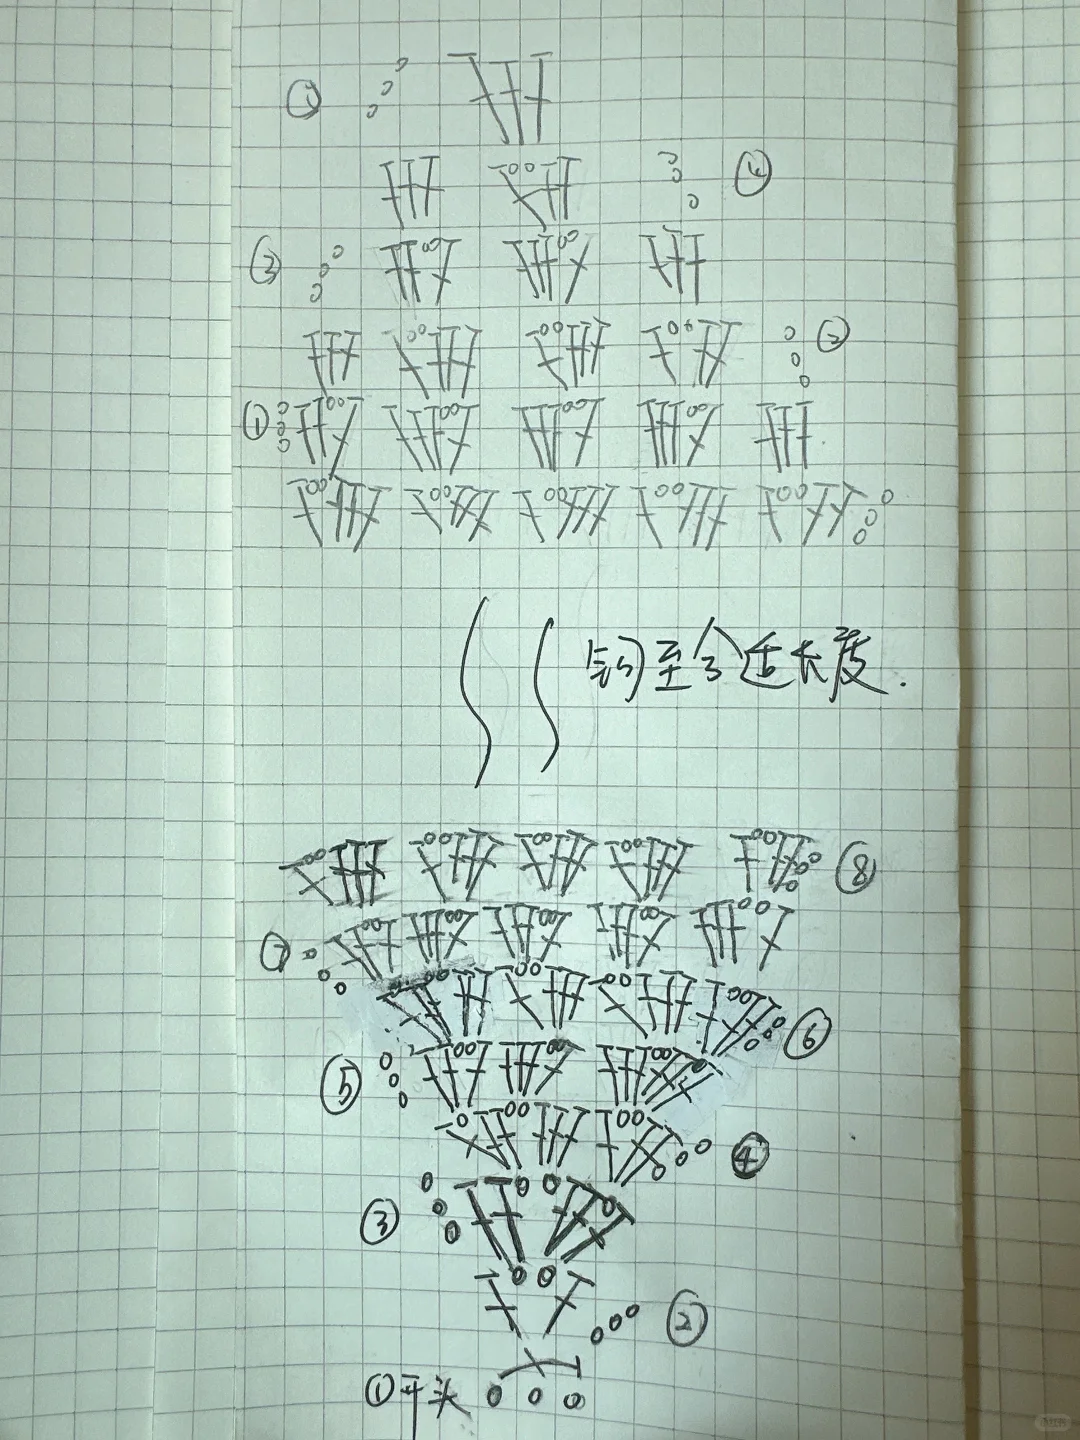 ④
③
②
①
钩至合适长度.
⑧
⑦
⑥
⑤
④
③
②
①开头